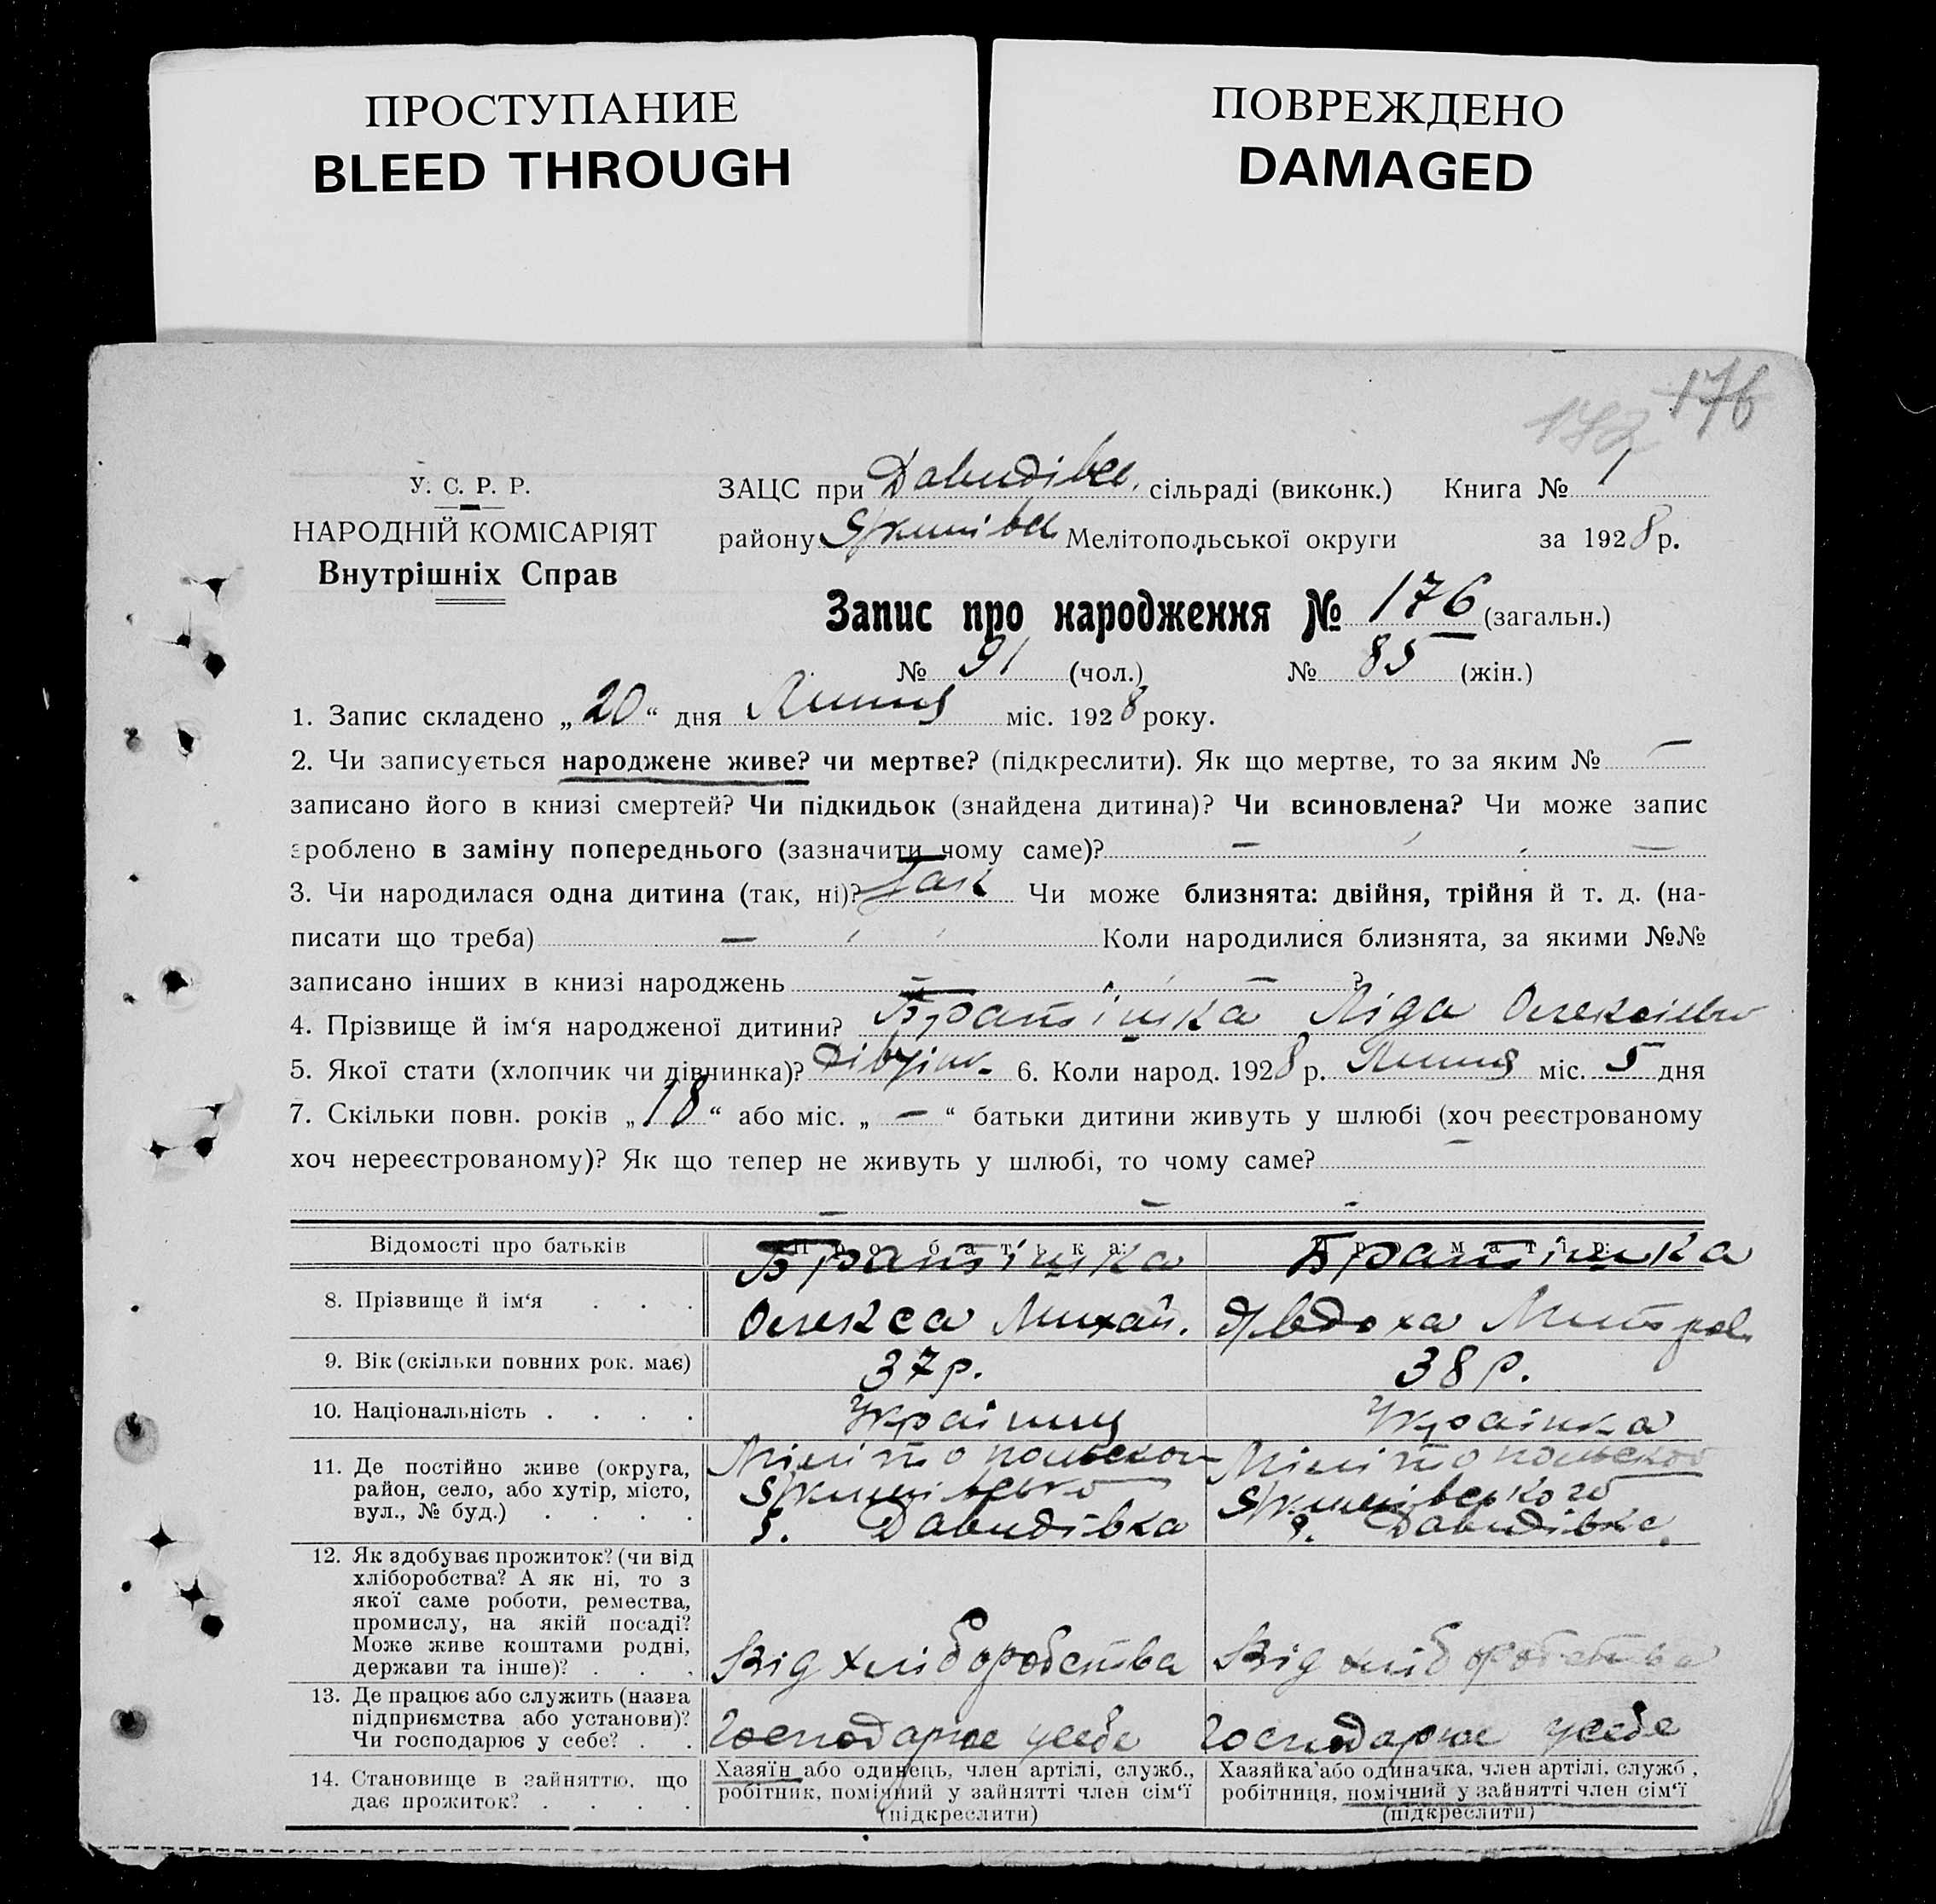 ПРОСТУПАНИЕ
BLEED THROUGH
ПОВРЕЖДЕНО
DAMAGED
176
172
У. С. Р. Р.
НАРОДНІЙ КОМІСАРІЯТ
Внутрішніх Справ
ЗАЦС при Давидівськ. сільраді (виконк.) Книга № 1
району Якимівськ Мелітопольської округи за 1928 р.
Запис про народження № 176 (загальн.)
№ 91 (чол.) № 85 (жін.)
1. Запис складено „20“ дня Липня міс. 1928 року.
2. Чи записується народжене живе? чи мертве? (підкреслити). Як що мертве, то за яким № —
записано його в книзі смертей? Чи підкидьок (знайдена дитина)? Чи всиновлена? Чи може запис
зроблено в заміну попереднього (зазначити чому саме)? —
3. Чи народилася одна дитина (так, ні)? Так Чи може близнята: двійня, трійня й т. д. (на-
писати що треба) — Коли народилися близнята, за якими №№
записано інших в книзі народжень — ?
4. Прізвище й ім‘я народженої дитини? Братішка Ліда Олексієвна
5. Якої стати (хлопчик чи дівчинка)? Дівчинк. 6. Коли народ. 1928 р. Липня міс. 5 дня
7. Скільки повн. років „18“ або міс. „ — “ батьки дитини живуть у шлюбі (хоч реєстрованому
хоч нереєстрованому)? Як що тепер не живуть у шлюбі, то чому саме? —
Відомості про батьків Про батька: Про матір:
Братішка Братішка
8. Прізвище й ім‘я . . . Олекса Михай. Явдоха Митров.
9. Вік (скільки повних рок. має) 37 р. 38 р.
10. Національність . . . . Українец Українка
11. Де постійно живе (округа, район, село, або хутір, місто, вул., № буд.) . . . .
Мілітопольскої
Якимівсько
с. Давидівка
Мілітопольскої
Якимівського
с. Давидівка
12. Як здобуває прожиток? (чи від
хліборобства? А як ні, то з
якої саме роботи, ремества,
промислу, на якій посаді?
Може живе коштами родні,
держави та інше)? . . .
Від хліборобства Від хліборобства
13. Де працює або служить (назва
підприємства або установи)?
Чи господарює у себе? . .
Господарює усебе Господарює усебе
14. Становище в зайняттю, що
дає прожиток? . . . .
Хазяїн або одинець, член артілі, служб.,
робітник, помічний у зайнятті член сім‘ї
(підкреслити)
Хазяйка або одиначка, член артілі, служб.,
робітниця, помічний у зайнятті член сім‘ї
(підкреслити)